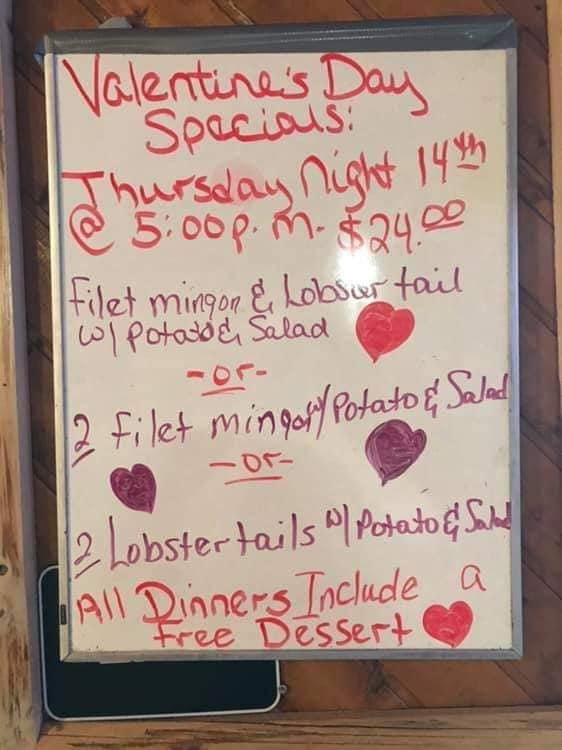 Valentine's Day
Specials:
Thursday Night 14th
@ 5:00 p.m. $24.00
Filet mingon & Lobster tail
w/ Potato & Salad
-or-
2 filet mingon w/ Potato & Salad
-or-
2 Lobster tails w/ Potato & Salad
All Dinners Include a
Free Dessert